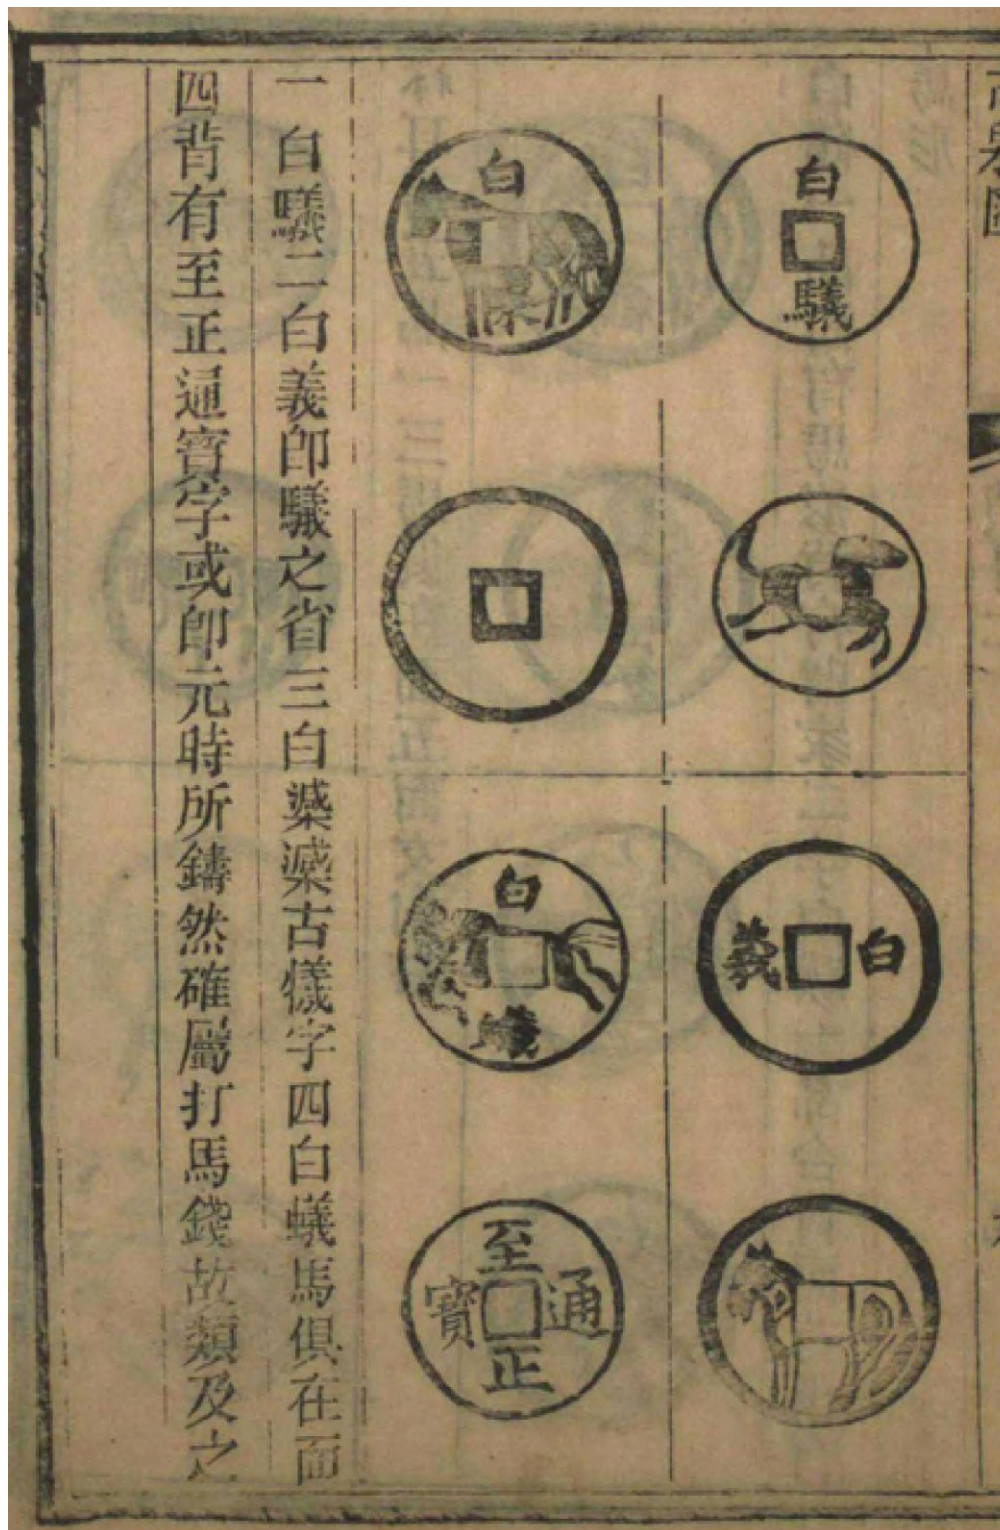 白
白義
白
白蟻
至正通寶
一白二白義即之省三白古字四白蟻馬俱在面
四背有至正通寶字或即元時所鑄然確屬打馬錢故類及之